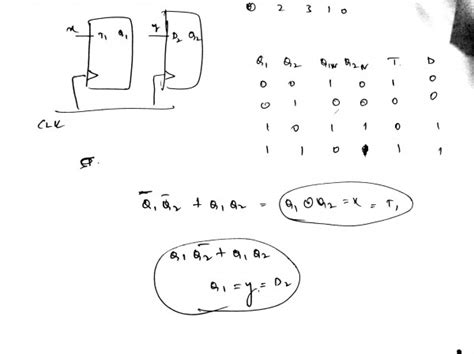 ⓪ 2 3 1 0
x T₁ Q₁ y D₂ Q₂
CLK
Q₁ Q₂ Q₁N Q₂N T D
0 0 1 0 1 0
0 1 0 0 0 0
1 0 1 1 0 1
1 1 0 1 1
Q̅₁ Q̅₂ + Q₁ Q₂ = Q₁ ⊙ Q₂ = x = T₁
Q₁ Q̅₂ + Q₁ Q₂
Q₁ = y = D₂